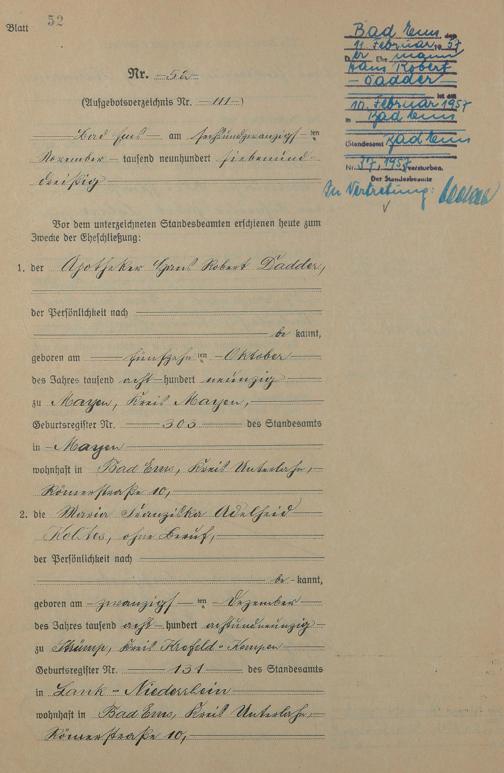 Blatt 52
Nr. 52
(Aufgebotsverzeichnis Nr. 111)
Bad Ems am sechsundzwanzigsten
November tausend neunhundert siebenund-
dreißig
Vor dem unterzeichneten Standesbeamten erschienen heute zum
Zwecke der Eheschließung:
1. der Apotheker Hans Robert Dadder,
der Persönlichkeit nach
be kannt,
geboren am fünfzehn ten Oktober
des Jahres tausend acht hundert neunzig
zu Mayen, Kreis Mayen,
Geburtsregister Nr. 303 des Standesamts
in Mayen
wohnhaft in Bad Ems, Kreis Unterlahn,
Römerstraße 10,
2. die Maria Franziska Adelheid
ohne Beruf,
der Persönlichkeit nach
be kannt,
geboren am zwanzigsten Dezember
des Jahres tausend acht hundert achtundneunzig
zu Strümp, Kreis Krefeld-Kempen
Geburtsregister Nr. 131 des Standesamts
in Lank-Niederrhein
wohnhaft in Bad Ems, Kreis Unterlahn,
Römerstraße 10,
Bad Ems, den
11. Februar 1957
Der Ehemann
Hans Robert
Dadder
ist am
10. Februar 1957
in Bad Ems
(Standesamt Bad Ems
Nr. 37, 1957 verstorben.
Der Standesbeamte
In Vertretung: